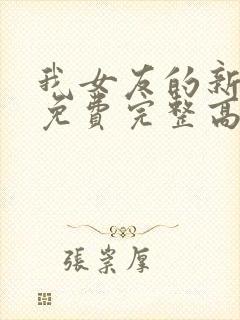 我女友的新
免費完整高
張崇厚